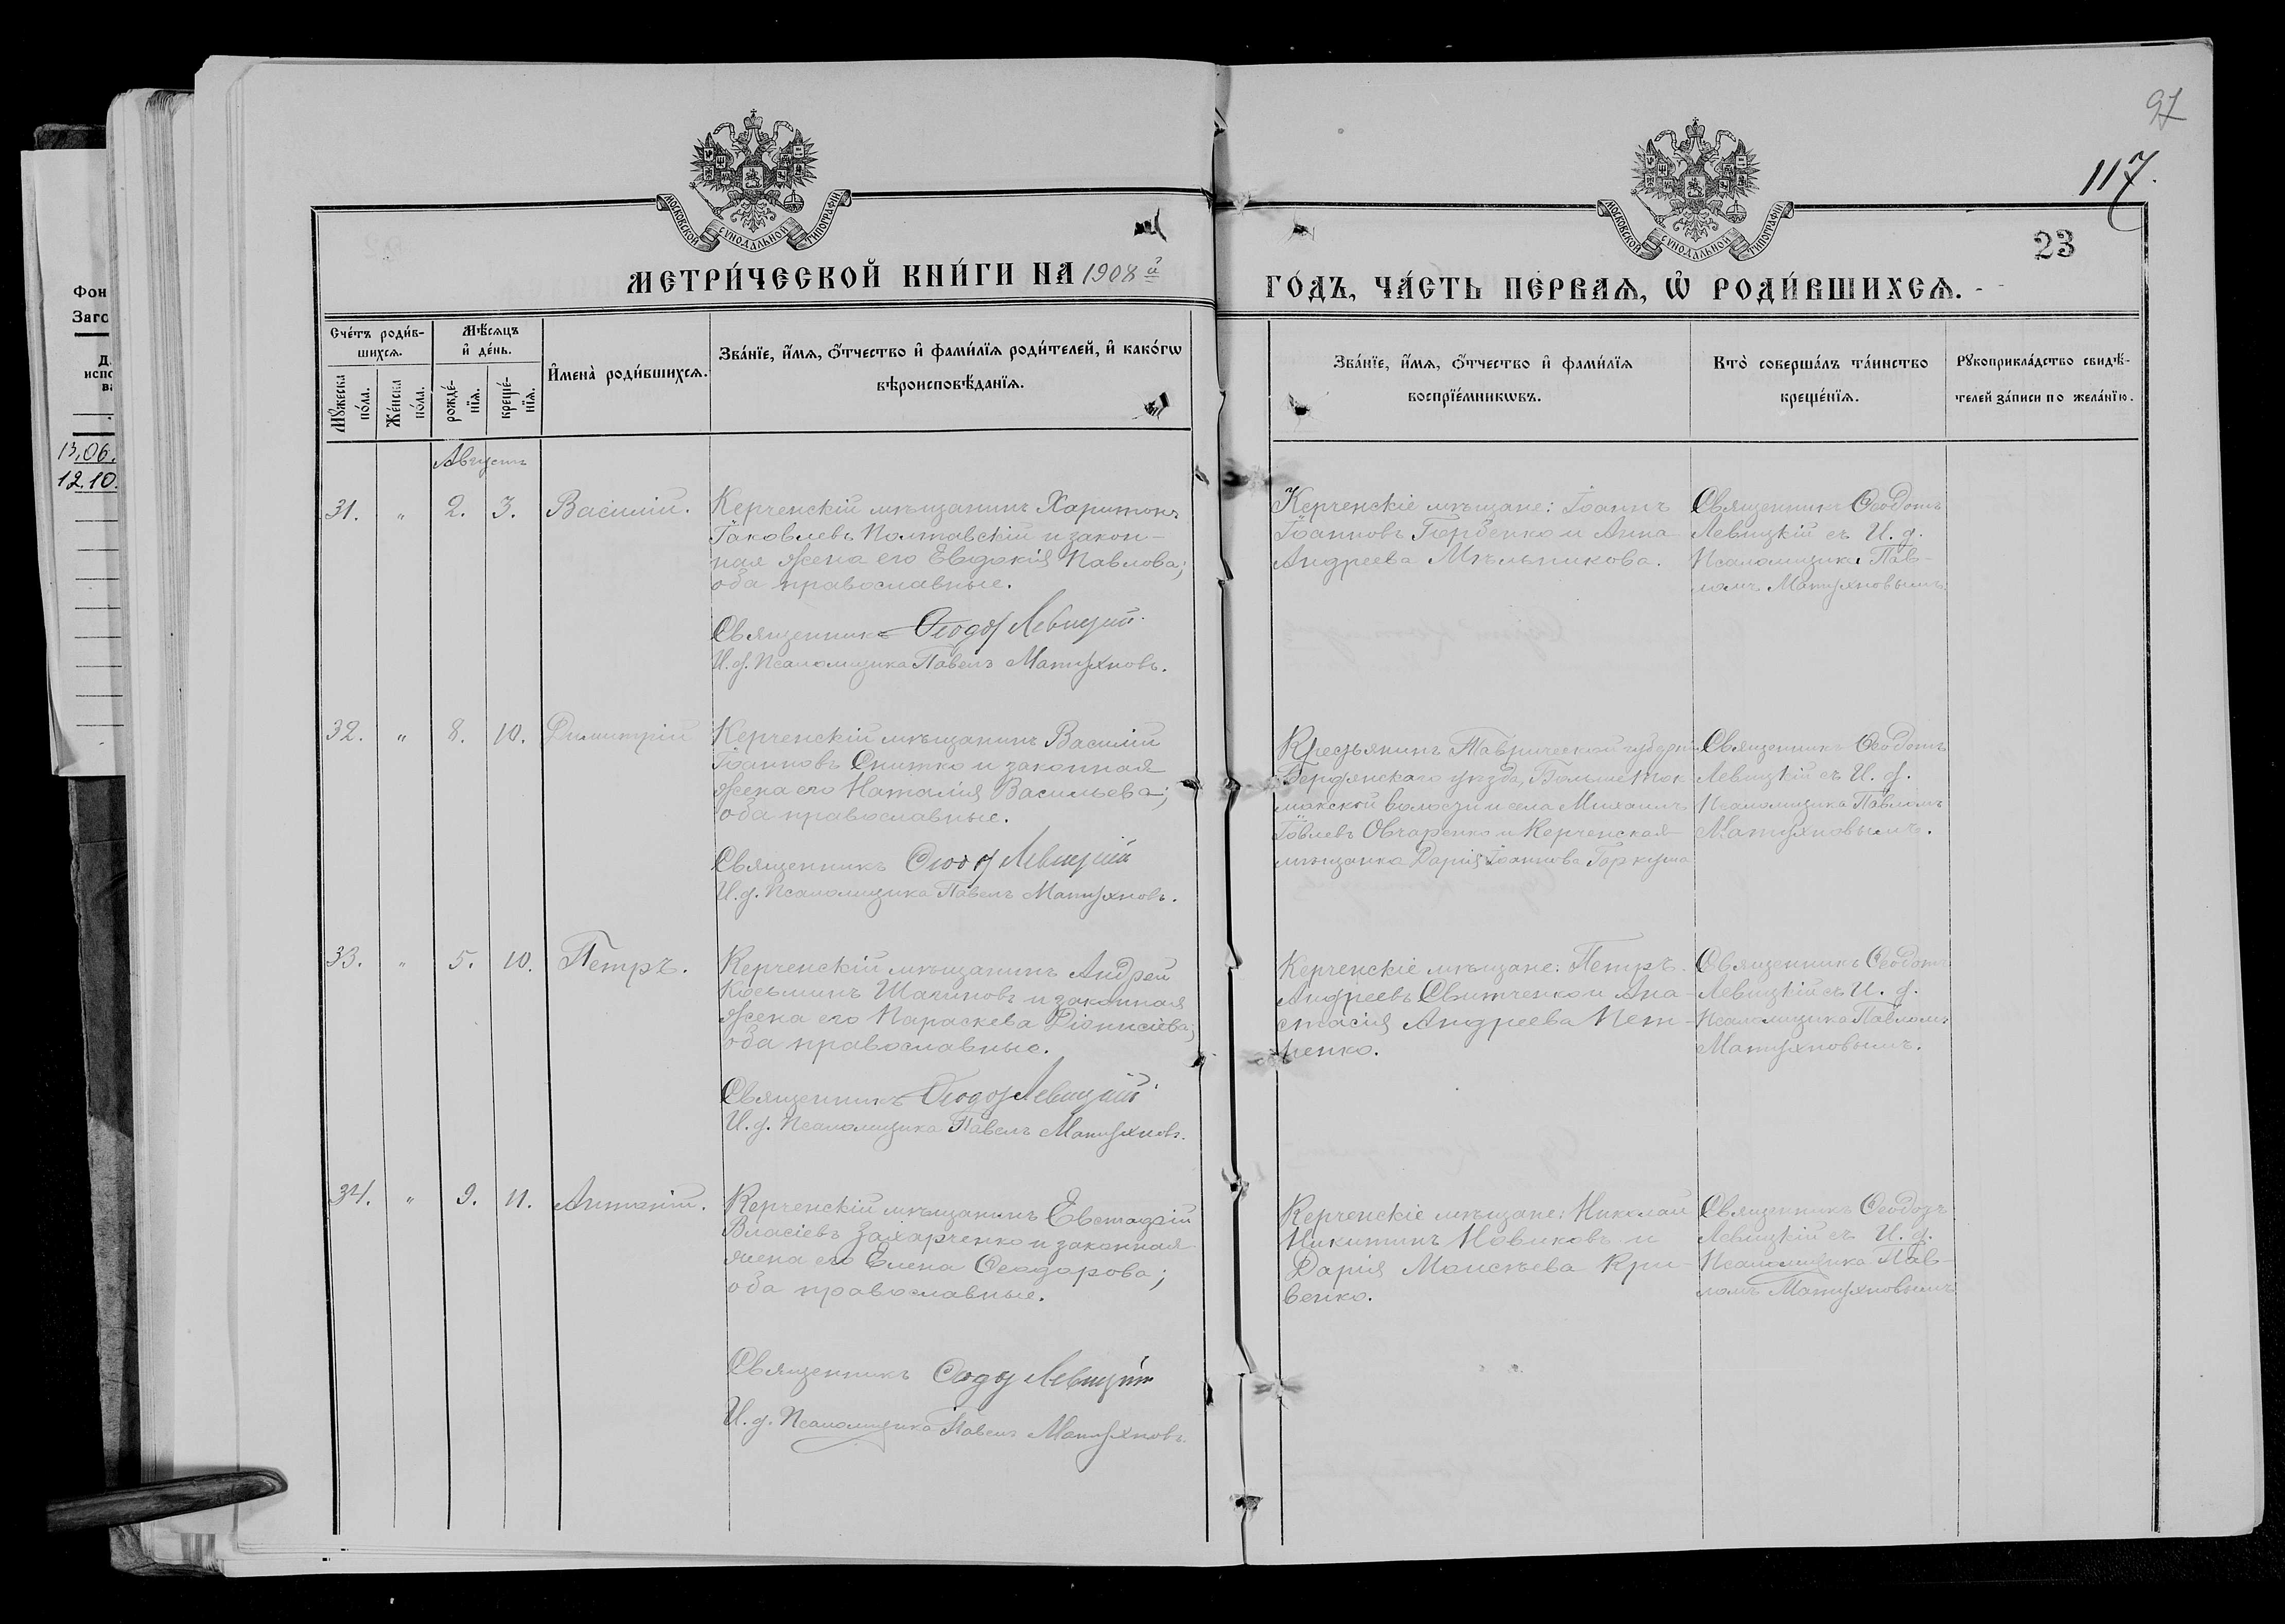 97
117.
23
МОСКОВСКОЙ СУНОДАЛЬНОЙ ТИПОГРАФІИ
МОСКОВСКОЙ СУНОДАЛЬНОЙ ТИПОГРАФІИ
МЕТРИ́ЧЕСКОЙ КНИ́ГИ НА 1908й
ГО́ДЪ, ЧА́СТЬ ПЕ́РВАѦ, Ѡ РОДИ́ВШИХСѦ.
Сче́тъ роди́в-
шихсѧ.
Мꙋжеска по́ла.
Же́нска по́ла.
Мѣ́сѧцъ
и де́нь.
рожде́-
нїѧ.
креще́-
нїѧ.
Имена̀ роди́вшихсѧ.
Зва́нїе, и́мѧ, о́тчество и фами́лїѧ роди́телей, и како́гѡ
вѣроисповѣ́данїѧ.
Зва́нїе, и́мѧ, о́тчество и фами́лїѧ
воспрїе́мникѡвъ.
Кто̀ соверша́лъ та́инство
креще́нїѧ.
Рꙋкоприкла́дство свидѣ́-
телей за́писи по жела́нїю.
Фон
Заго
Д
испо
ва
13.06.
12.10.
Августъ
31. " 2. 3. Василій.
Керченскій мѣщанинъ Харитонъ
Іаковлевъ Полтавскій и закон-
ная жена его Евдокія Павлова;
оба православные.
Священникъ Ѳеодотъ Левицкій.
И. д. Псаломщика Павелъ Матяхновъ.
Керченскіе мѣщане: Іоаннъ
Іоанновъ Горбенко и Анна
Андреева Мѣльникова.
Священникъ Ѳеодотъ
Левицкій съ И. д.
Псаломщика Пав-
ломъ Матяхновымъ.
32. " 8. 10. Димитрій
Керченскій мѣщанинъ Василій
Іоанновъ Снитко и законная
жена его Наталія Васильева;
оба православные.
Священникъ Ѳеодотъ Левицкій
И. д. Псаломщика Павелъ Матяхновъ.
Крестьянинъ Таврической губерніи
Бердянскаго уѣзда, Больше Ток
макской волости и села Михаилъ
Іовлевъ Овчаренко и Керченская
мѣщанка Дарія Іоаннова
Священникъ Ѳеодотъ
Левицкій съ И. д.
Псаломщика Павломъ
Матяхновымъ.
33. " 5. 10. Петръ.
Керченскій мѣщанинъ Андрей
Косьминъ Шачиновъ и законная
жена его Параскева Діонисіева;
оба православные.
Священникъ Ѳеодотъ Левицкій
И. д. Псаломщика Павелъ Матяхновъ.
Керченскіе мѣщане: Петръ
Андреевъ Свитченко и Ана-
стасія Андреева Пет-
ренко.
Священникъ Ѳеодотъ
Левицкій съ И. д.
Псаломщика Павломъ
Матяхновымъ.
34. " 9. 11. Антоній.
Керченскій мѣщанинъ Евстафій
Власіевъ Захарченко и законная
жена его Елена Ѳеодорова;
оба православные.
Священникъ Ѳеодотъ Левицкій
И. д. Псаломщика Павелъ Матяхновъ.
Керченскіе мѣщане: Николай
Никитинъ Новиковъ и
Дарія Моисеева Кри-
венко.
Священникъ Ѳеодотъ
Левицкій съ И. д.
Псаломщика Пав-
ломъ Матяхновымъ